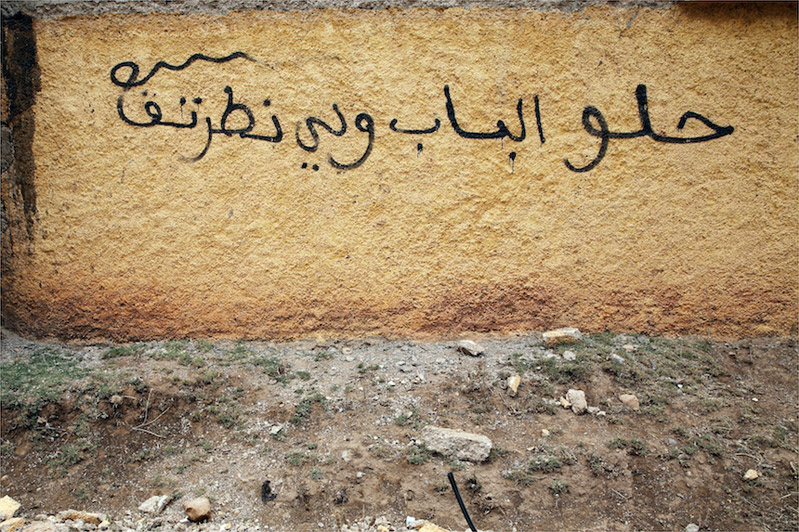 حلو الباب ولي نطرتق